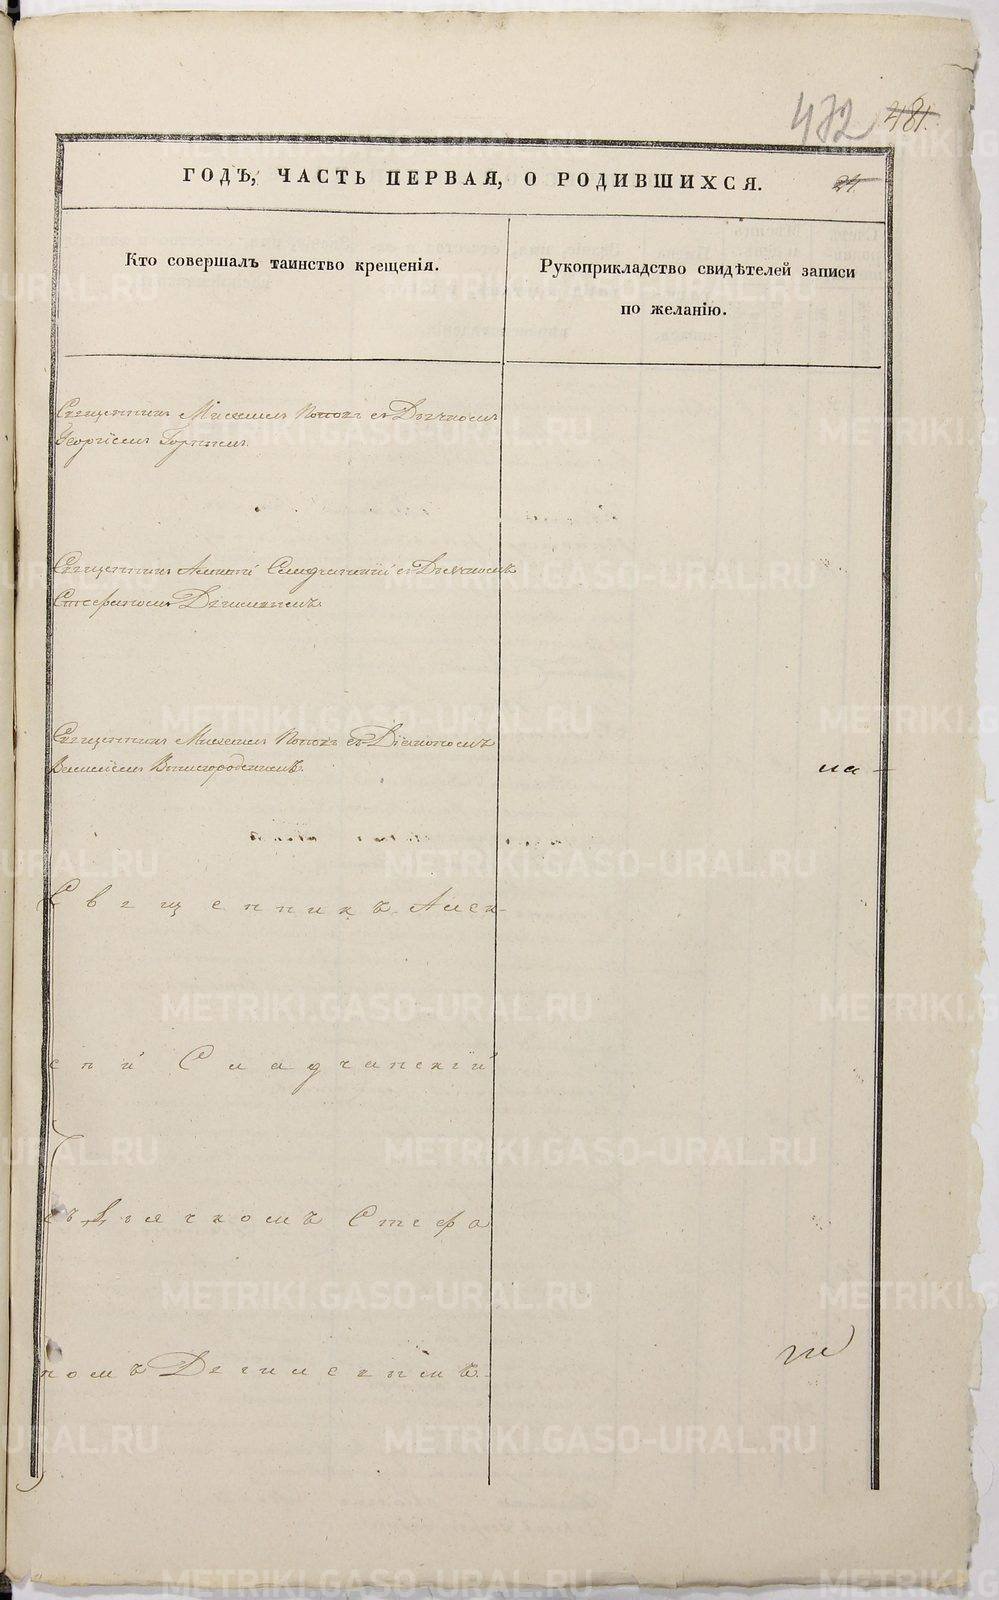 472 481.
ГОДЪ, ЧАСТЬ ПЕРВАЯ, О РОДИВШИХСЯ. 24.
Кто совершалъ таинство крещенія.
Рукоприкладство свидѣтелей записи
по желанію.
Священникъ Михаилъ Поповъ съ Дьячкомъ
Георгіемъ
Священникъ Алексѣй Сладчанскій съ Дьячкомъ
Стефаномъ
Священникъ Михаилъ Поповъ съ Діакономъ
Василіемъ
на
Священникъ Алек-
сѣй Сладчанскій
съ Дьячкомъ Стефа
номъ
METRIKI.GASO-URAL.RU